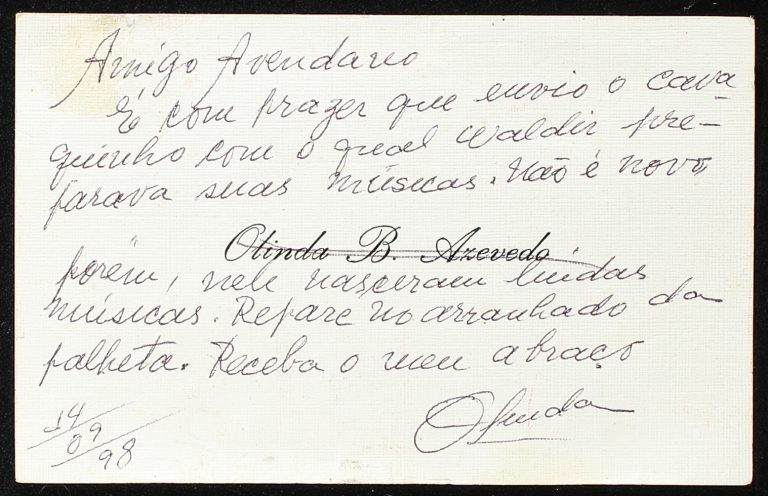 Amigo Avendano
É com prazer que envio o cava
quinho com o qual Waldir pre-
parava suas músicas. Não é novo,
Olinda B. Azevedo
porém, nele nasceram lindas
músicas. Repare no arranhado da
palheta. Receba o meu abraço
Olinda
14/09/98